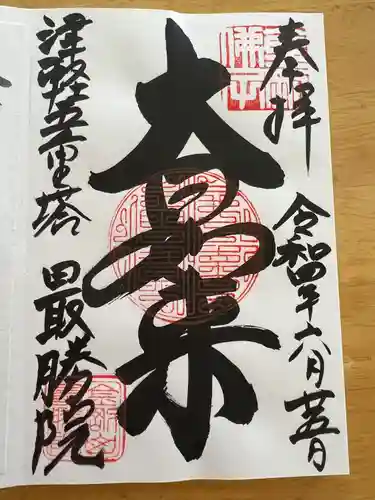 奉拝
令和四年六月廿五日
大日如来
津軽五重塔
最勝院